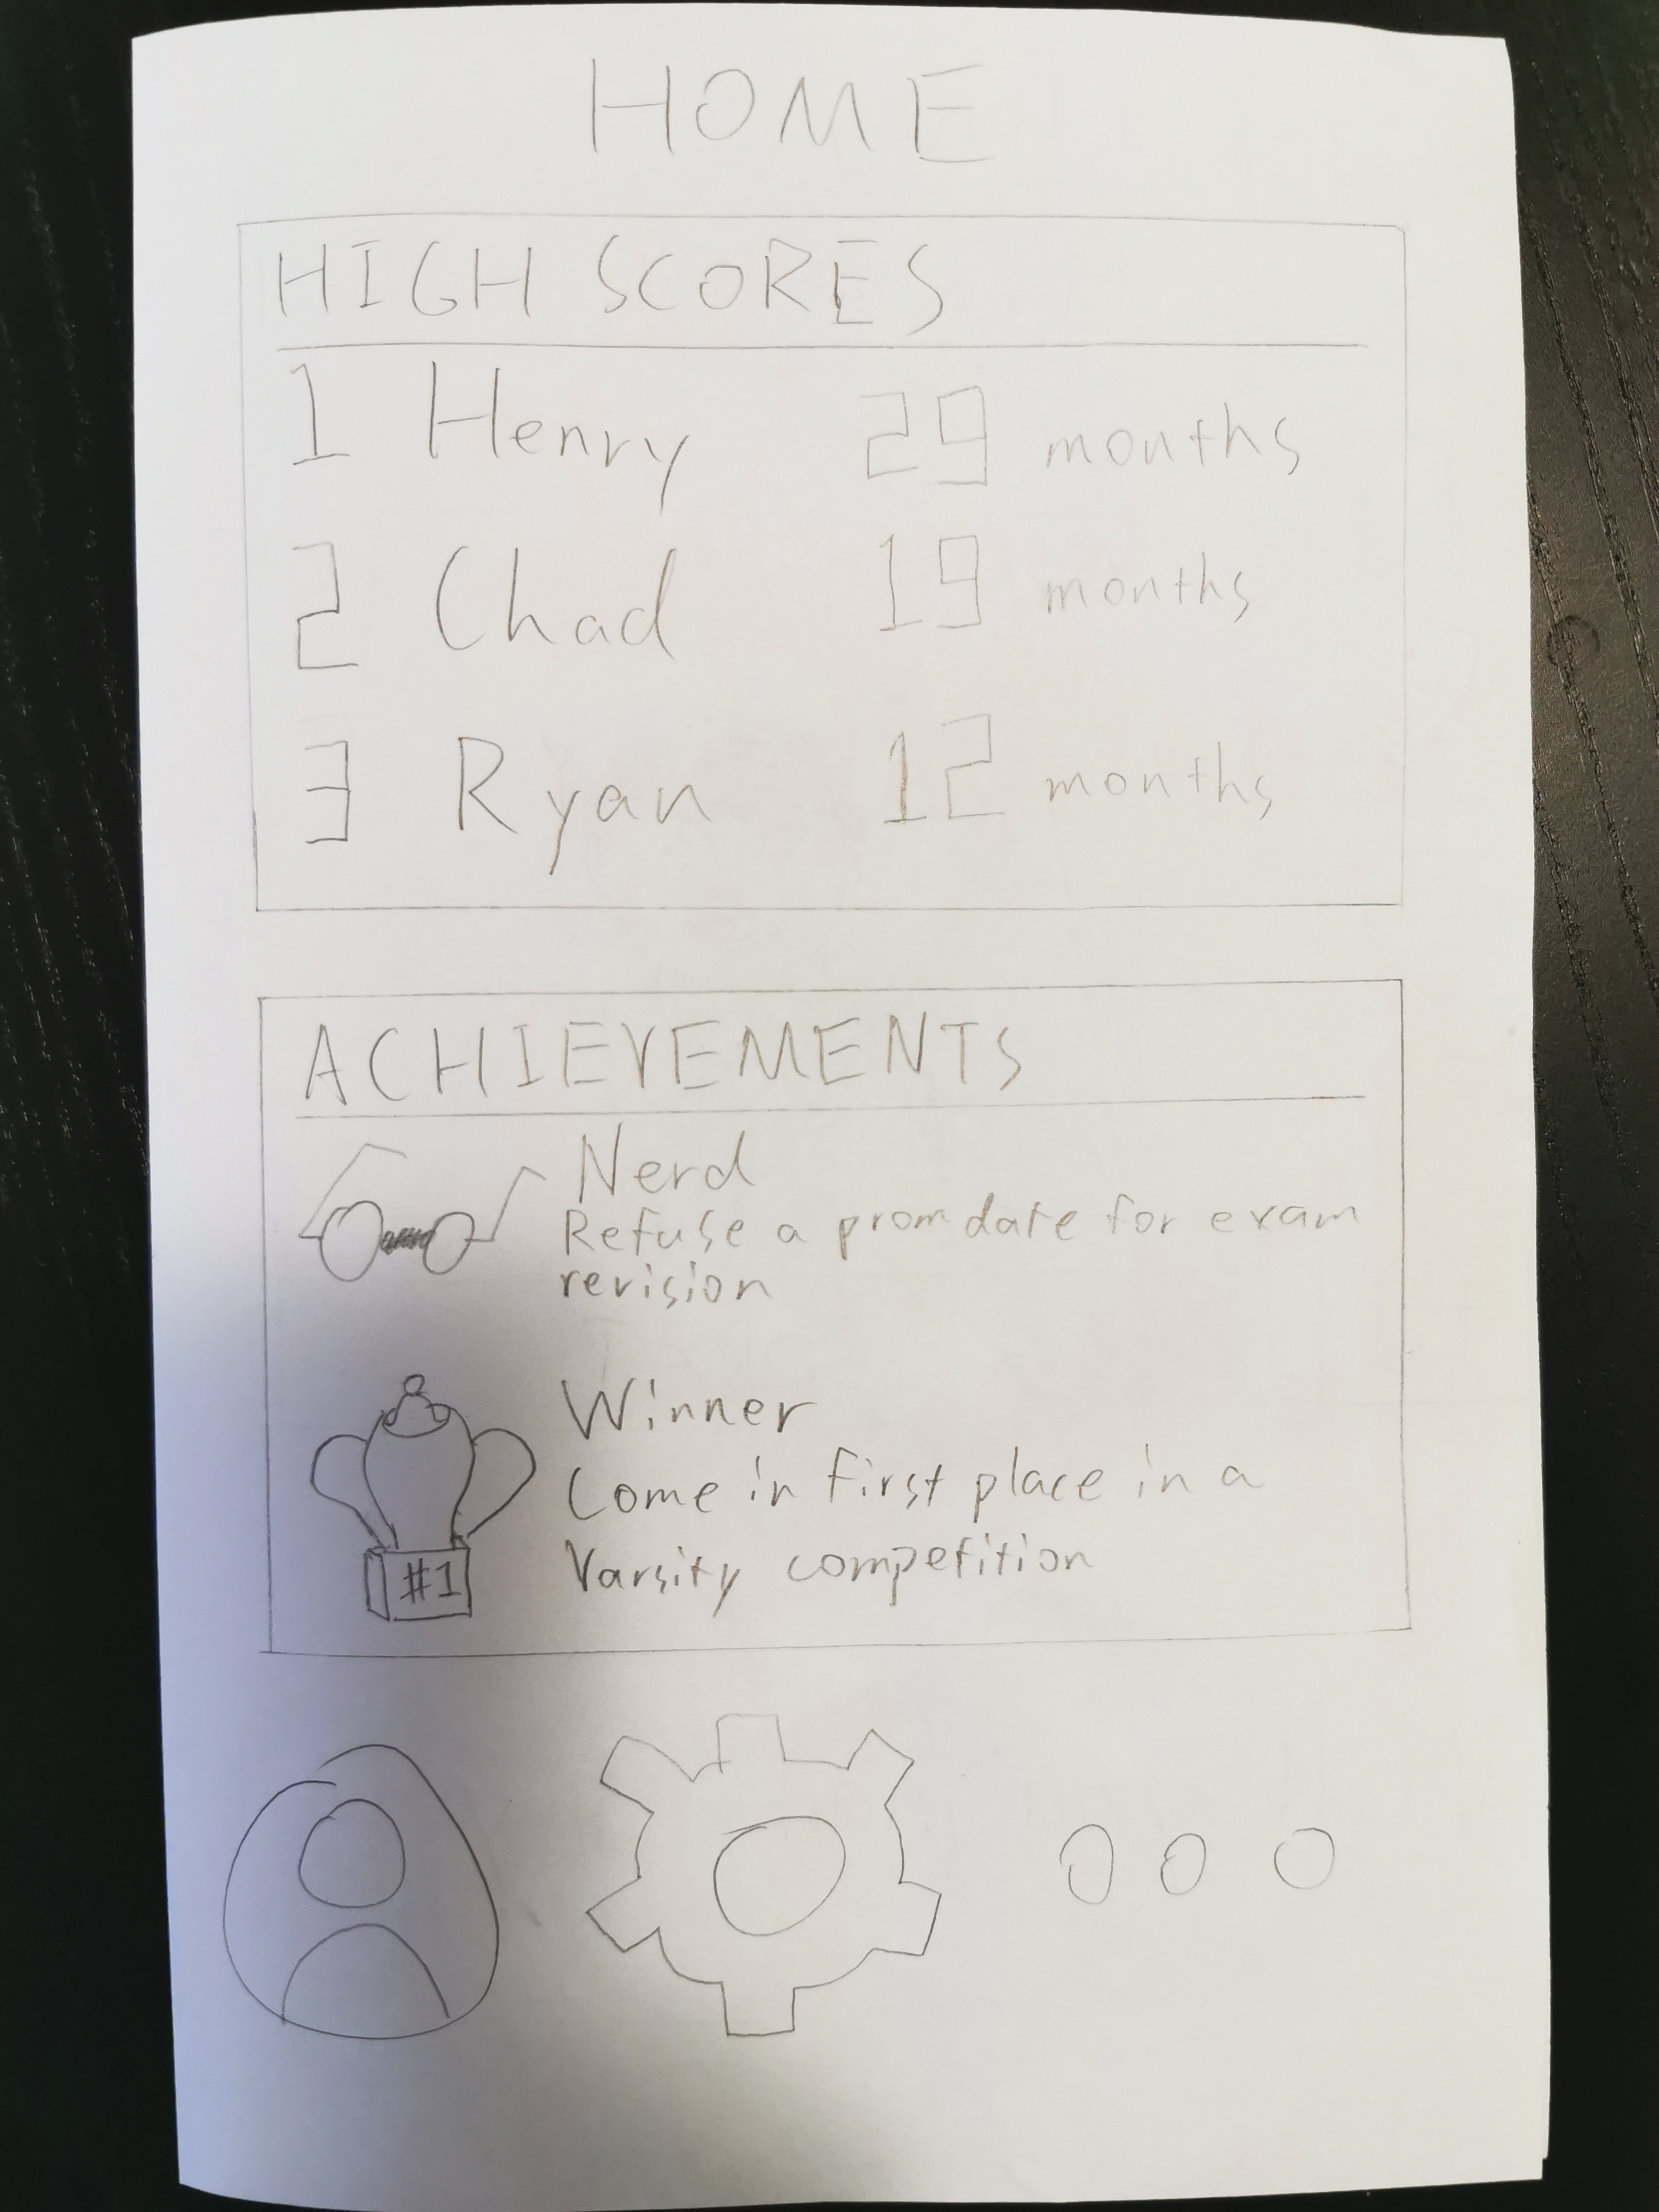 HOME
HIGH SCORES
1 Henry 29 months
2 Chad 19 months
3 Ryan 12 months
ACHIEVEMENTS
Nerd
Refuse a prom date for exam
revision
Winner
Come in first place in a
Varsity competition
#1